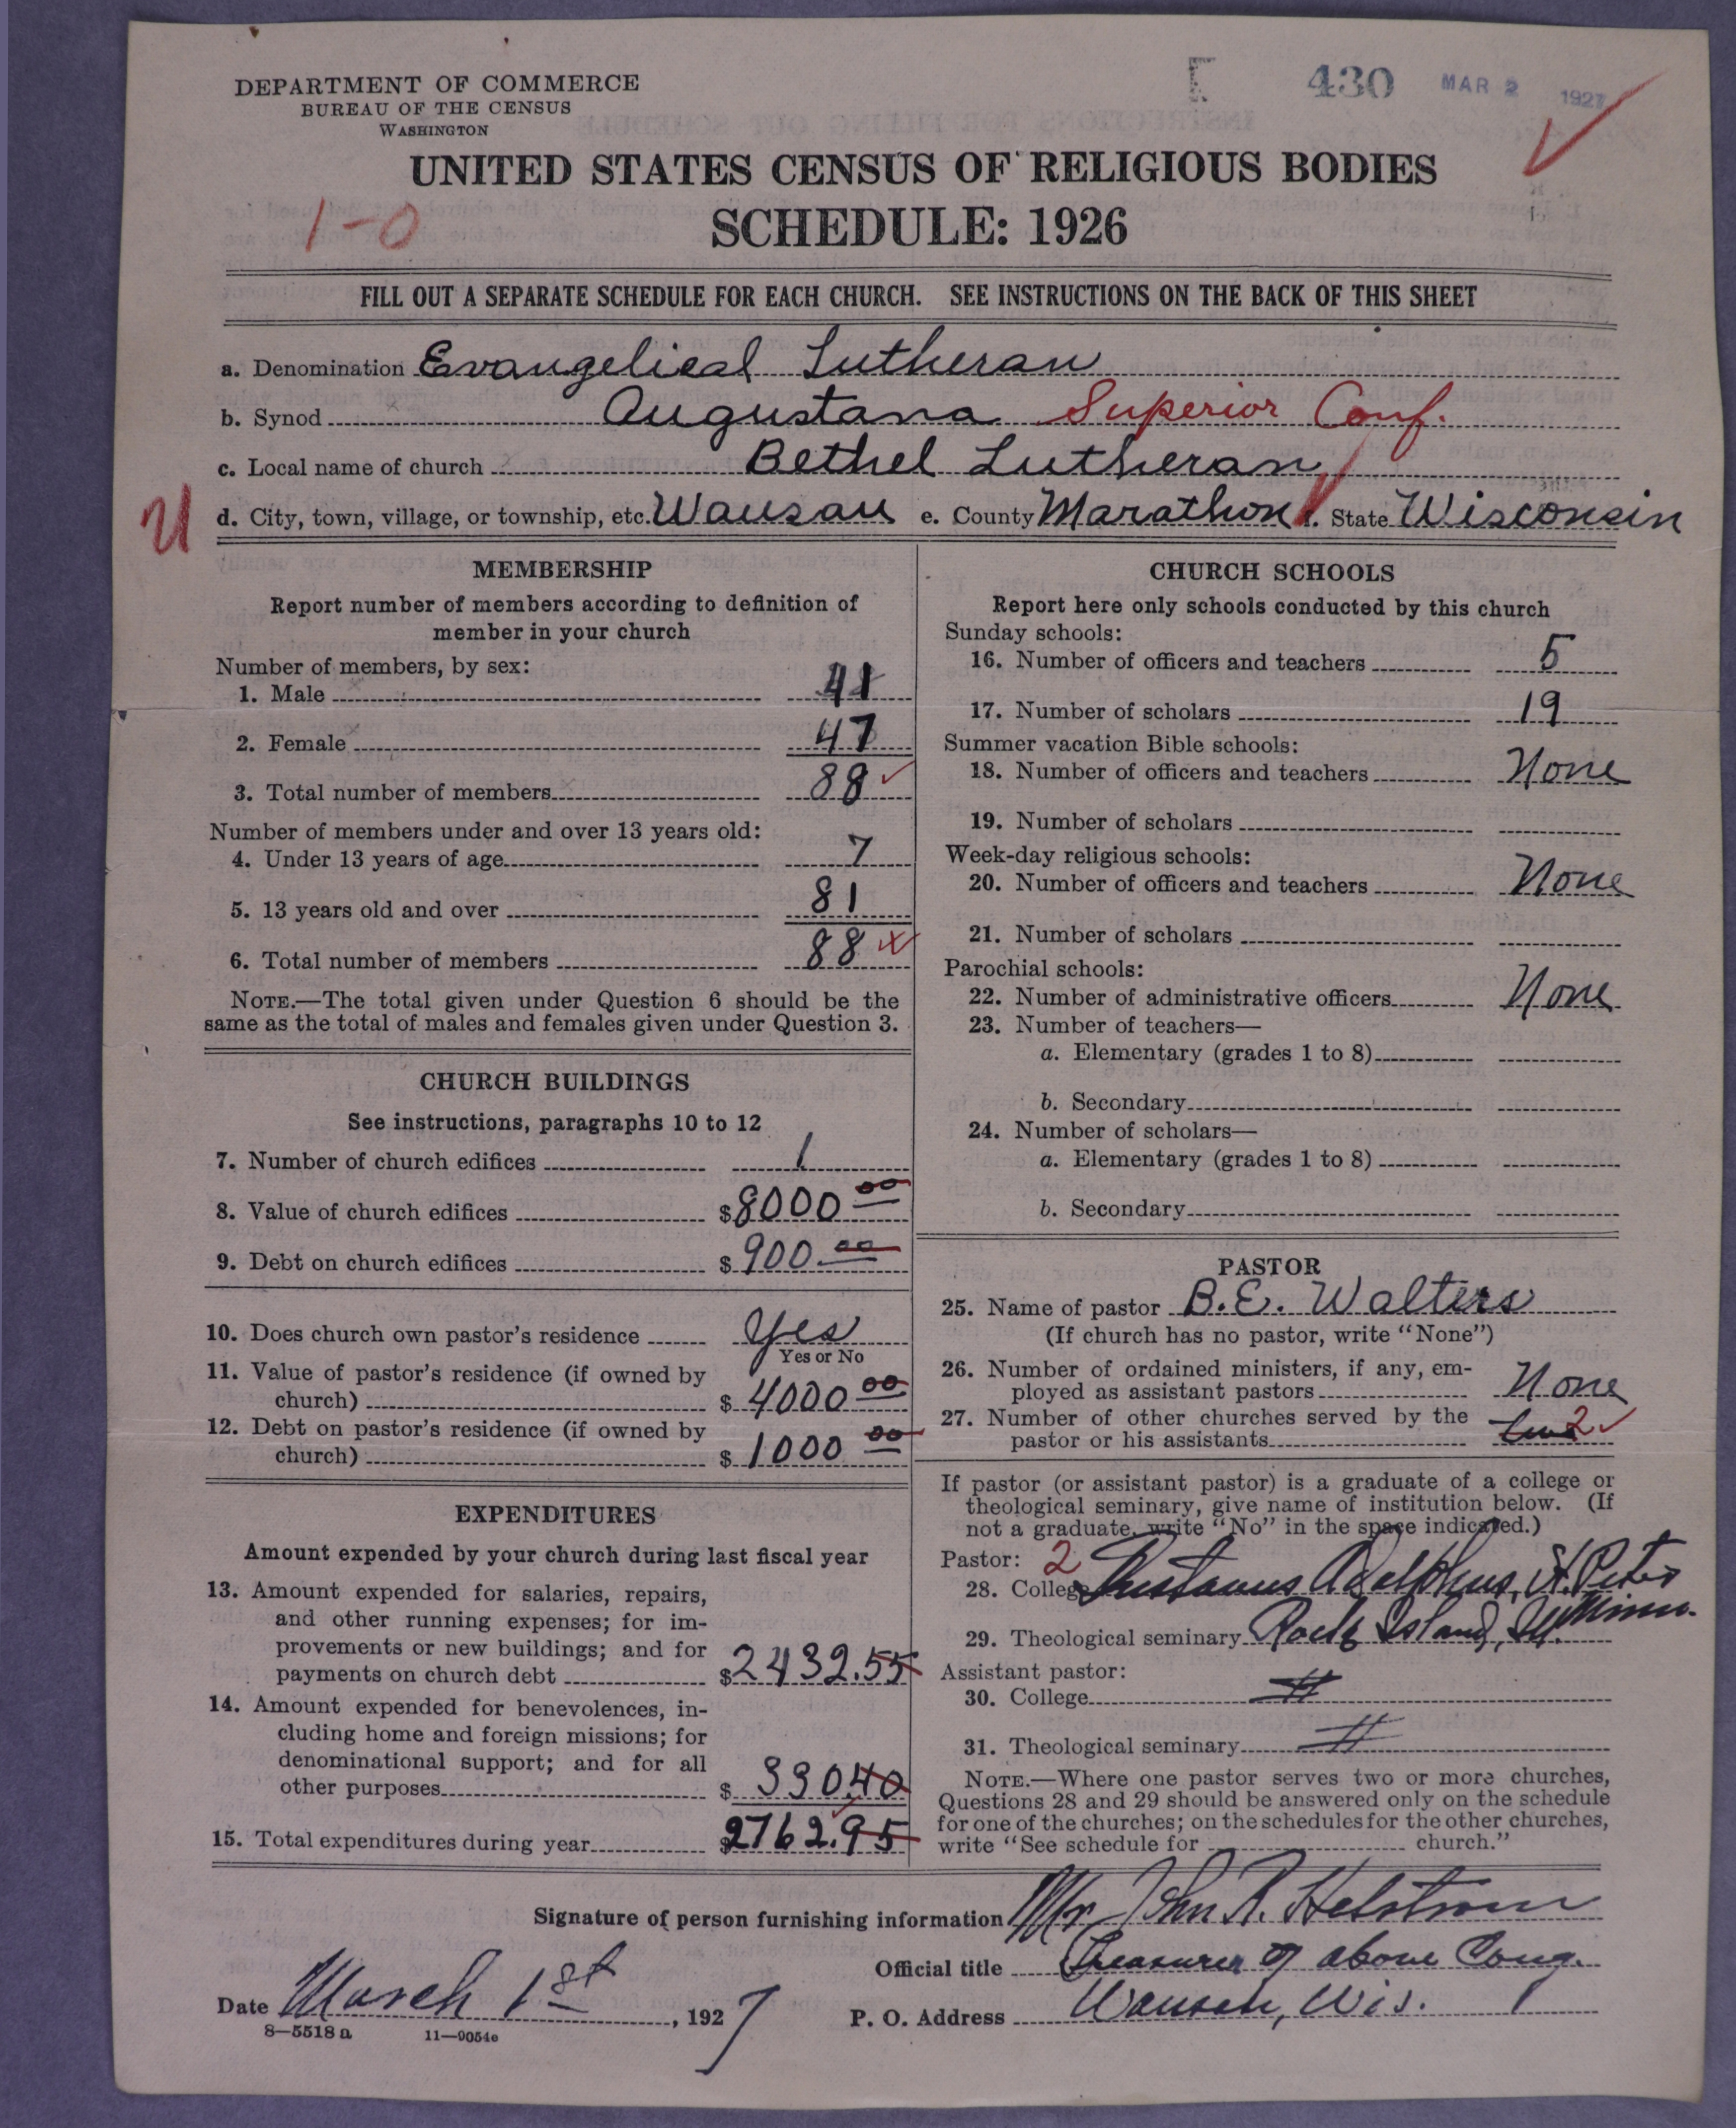 DEPARTMENT OF COMMERCE
BUREAU OF THE CENSUS
WASHINGTON
430 MAR 2 1927
UNITED STATES CENSUS OF RELIGIOUS BODIES
1-0
SCHEDULE: 1926
FILL OUT A SEPARATE SCHEDULE FOR EACH CHURCH. SEE INSTRUCTIONS ON THE BACK OF THIS SHEET
a. Denomination Evangelical Lutheran
b. Synod Augustana Superior Conf.
c. Local name of church Bethel Lutheran
d. City, town, village, or township, etc. Wausau e. County Marathon f. State Wisconsin
MEMBERSHIP
Report number of members according to definition of
member in your church
Number of members, by sex:
1. Male 41
2. Female 47
3. Total number of members 88
Number of members under and over 13 years old:
4. Under 13 years of age 7
5. 13 years old and over 81
6. Total number of members 88
NOTE.—The total given under Question 6 should be the
same as the total of males and females given under Question 3.
CHURCH BUILDINGS
See instructions, paragraphs 10 to 12
7. Number of church edifices 1
8. Value of church edifices $8000 00
9. Debt on church edifices $900.00
10. Does church own pastor's residence Yes
Yes or No
11. Value of pastor's residence (if owned by
church) $4000 00
12. Debt on pastor's residence (if owned by
church) $1000 00
EXPENDITURES
Amount expended by your church during last fiscal year
13. Amount expended for salaries, repairs,
and other running expenses; for im-
provements or new buildings; and for
payments on church debt $2432.55
14. Amount expended for benevolences, in-
cluding home and foreign missions; for
denominational support; and for all
other purposes $330.40
15. Total expenditures during year $2762.95
CHURCH SCHOOLS
Report here only schools conducted by this church
Sunday schools:
16. Number of officers and teachers 5
17. Number of scholars 19
Summer vacation Bible schools:
18. Number of officers and teachers None
19. Number of scholars
Week-day religious schools:
20. Number of officers and teachers None
21. Number of scholars
Parochial schools:
22. Number of administrative officers None
23. Number of teachers—
a. Elementary (grades 1 to 8)
b. Secondary
24. Number of scholars—
a. Elementary (grades 1 to 8)
b. Secondary
PASTOR
25. Name of pastor B.E. Walters
(If church has no pastor, write "None")
26. Number of ordained ministers, if any, em-
ployed as assistant pastors None
27. Number of other churches served by the
pastor or his assistants two 2
If pastor (or assistant pastor) is a graduate of a college or
theological seminary, give name of institution below. (If
not a graduate, write "No" in the space indicated.)
Pastor: 2
28. College Gustavus Adolphus, St. Peter
Minn.
29. Theological seminary Rock Island, Ill.
Assistant pastor:
30. College
31. Theological seminary
NOTE.—Where one pastor serves two or more churches,
Questions 28 and 29 should be answered only on the schedule
for one of the churches; on the schedules for the other churches,
write "See schedule for church."
Signature of person furnishing information Mr John R. Helstrom
Official title Treasurer of above Cong.
Date March 1st, 1927 P. O. Address Wausau, Wis.
8—5518 a 11—9054e